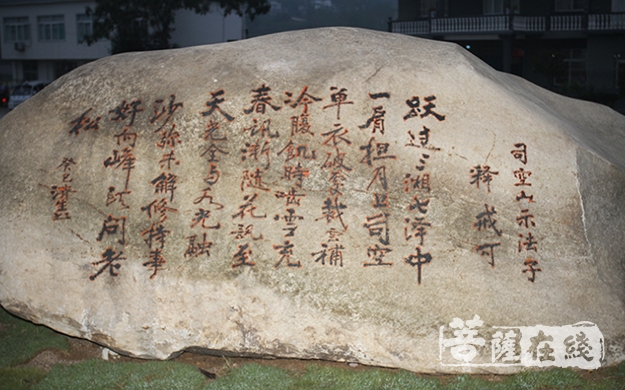 司空山示法子
释戒可
跃过三湘七泽中
一肩担月上司空
单衣破处裁云补
冷腹飢时嚼雪充
春讯渐随花讯至
天光全与水光融
沙弥未解修持事
好向峰头问老
松
癸巳
菩薩在綫